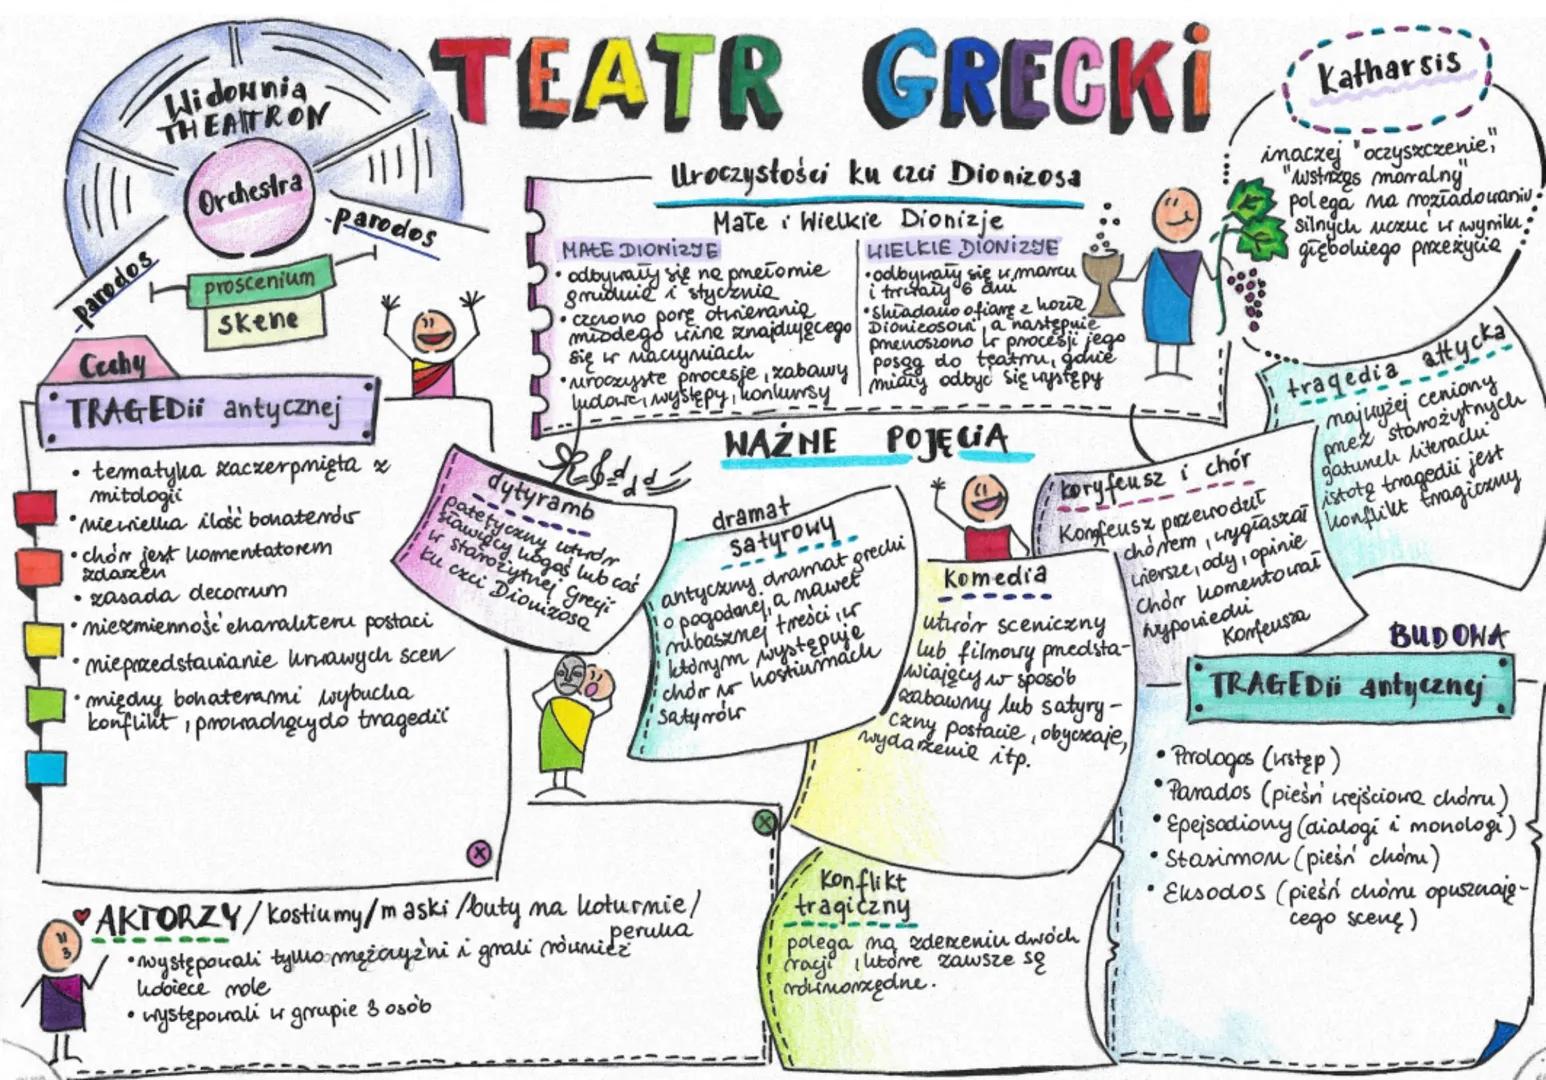 TEATR GRECKI
Widownia
THEATTRON
Orchestra
parodos
parodos
proscenium
skene
Uroczystości ku czci Dionizosa
Małe i Wielkie Dionizje
MAŁE DIONIZJE
• odbywały się na przełomie
grudnia i stycznia
• czczono porę otwierania
młodego wina znajdującego
się w naczyniach
• uroczyste procesje, zabawy
ludowe, występy, konkursy
WIELKIE DIONIZJE
• odbywały się w marcu
i trwały 6 dni
• składano ofiarę z kozła
Dionizosowi, a następnie
przenoszono w procesji jego
posąg do teatru, gdzie
miały odbyć się występy
Katharsis
inaczej "oczyszczenie",
"wstrząs moralny"
polega na rozładowaniu
silnych uczuć w wyniku
głębokiego przeżycia
Cechy
TRAGEDii antycznej
• tematyka zaczerpnięta z
mitologii
• niewielka ilość bohaterów
• chór jest komentatorem
zdarzeń
• zasada decorum
• niezmienność charakteru postaci
• nieprzedstawianie krwawych scen
• między bohaterami wybucha
konflikt, prowadzący do tragedii
WAŻNE POJĘCiA
dytyramb
patetyczny utwór
sławiący kogoś lub coś
w starożytnej Grecji
ku czci Dionizosa
dramat
satyrowy
antyczny dramat grecki
o pogodnej, a nawet
rubasznej treści, w
którym występuje
chór w kostiumach
satyrów
Komedia
utwór sceniczny
lub filmowy przedsta-
wiający w sposób
zabawny lub satyry-
czny postacie, obyczaje,
wydarzenia itp.
koryfeusz i chór
Koryfeusz przewodził
chórem, wygłaszał
wiersze, ody, opinie
chór komentował
wypowiedzi
Koryfeusza
tragedia attycka
najwyżej ceniony
przez starożytnych
gatunek literacki
istotą tragedii jest
konflikt tragiczny
BUDOWA
TRAGEDii antycznej
• Prologos (wstęp)
• Parados (pieśń wejściowa chóru)
• Epejsodiony (dialogi i monologi)
• Stasimon (pieśń chóru)
• Eksodos (pieśń chóru opuszczają-
cego scenę)
Konflikt
tragiczny
polega na zderzeniu dwóch
racji, które zawsze są
równorzędne.
AKTORZY/kostiumy/maski/buty na koturnie/
peruka
• występowali tylko mężczyźni i grali również
kobiece role
• występowali w grupie 3 osób